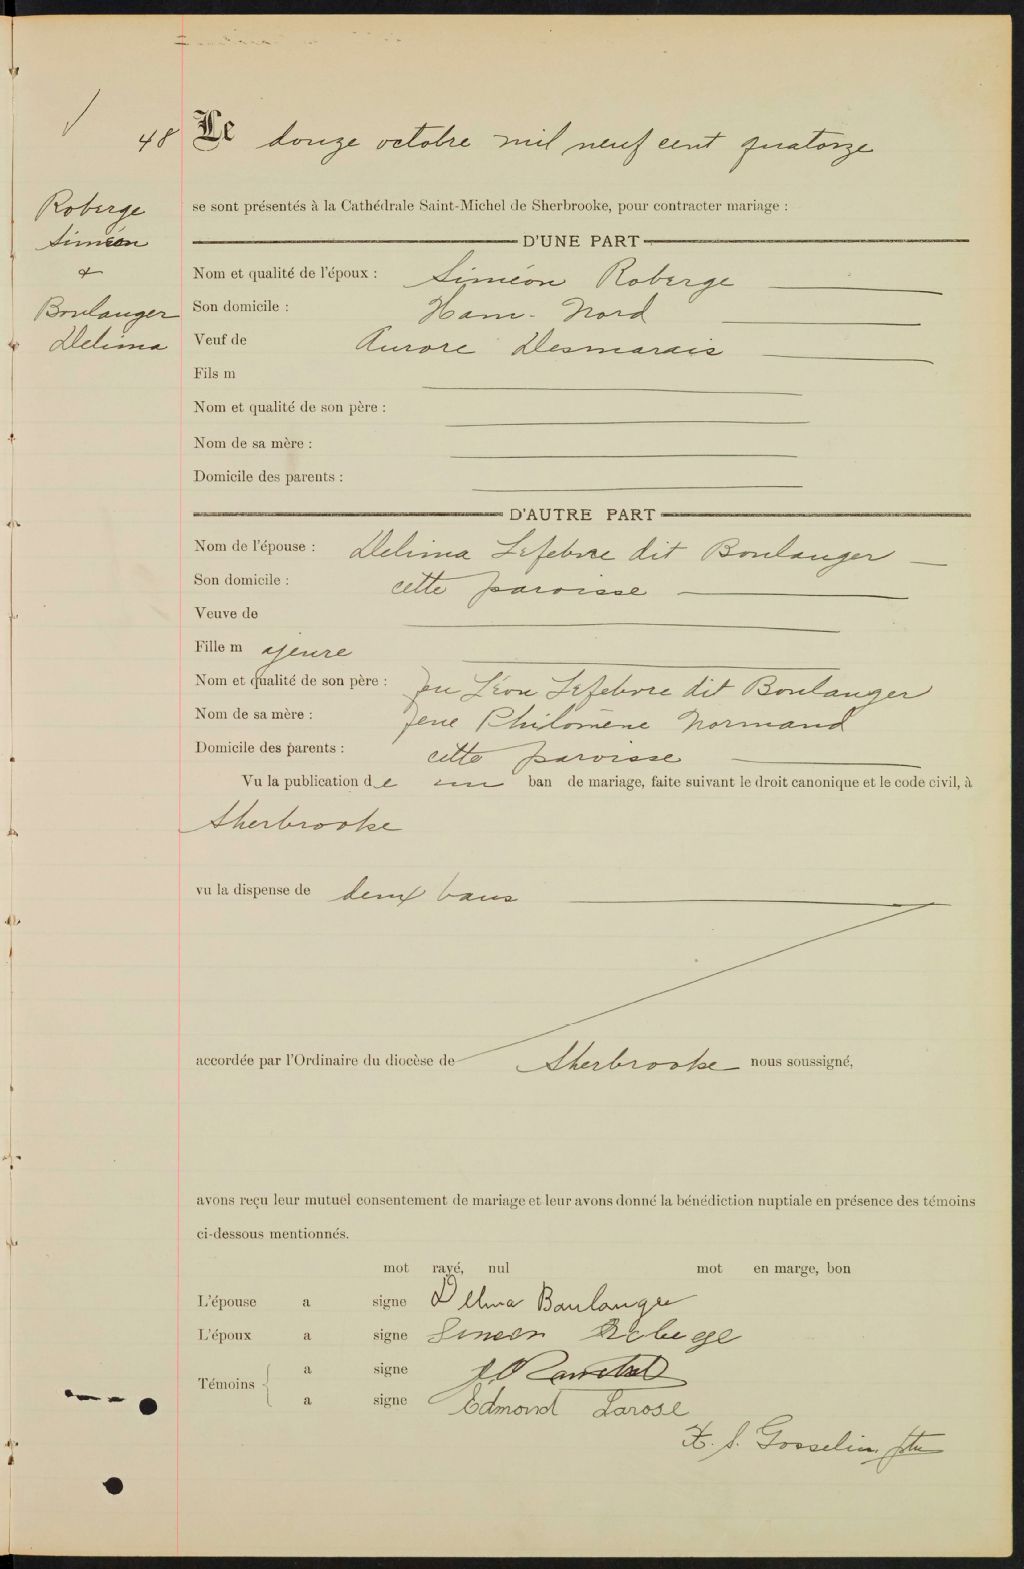 48 Le douze octobre mil neuf cent quatorze
Roberge
Siméon
&
Boulanger
Delima
se sont présentés à la Cathédrale Saint-Michel de Sherbrooke, pour contracter mariage :
D'UNE PART
Nom et qualité de l'époux : Siméon Roberge
Son domicile : Ham-Nord
Veuf de Aurore Desmarais
Fils m
Nom et qualité de son père :
Nom de sa mère :
Domicile des parents :
D'AUTRE PART
Nom de l'épouse : Delima Lefebvre dit Boulanger
Son domicile : cette paroisse
Veuve de
Fille m ajeure
Nom et qualité de son père : feu Léon Lefebvre dit Boulanger
Nom de sa mère : feue Philomène Normand
Domicile des parents : cette paroisse
Vu la publication de un ban de mariage, faite suivant le droit canonique et le code civil, à
Sherbrooke
vu la dispense de deux bans
accordée par l'Ordinaire du diocèse de Sherbrooke nous soussigné,
avons reçu leur mutuel consentement de mariage et leur avons donné la bénédiction nuptiale en présence des témoins
ci-dessous mentionnés.
mot rayé, nul mot en marge, bon
L'épouse a signe Delima Boulanger
L'époux a signe Simeon Roberge
Témoins a signe
a signe Edmond Larose
Gosselin ptre